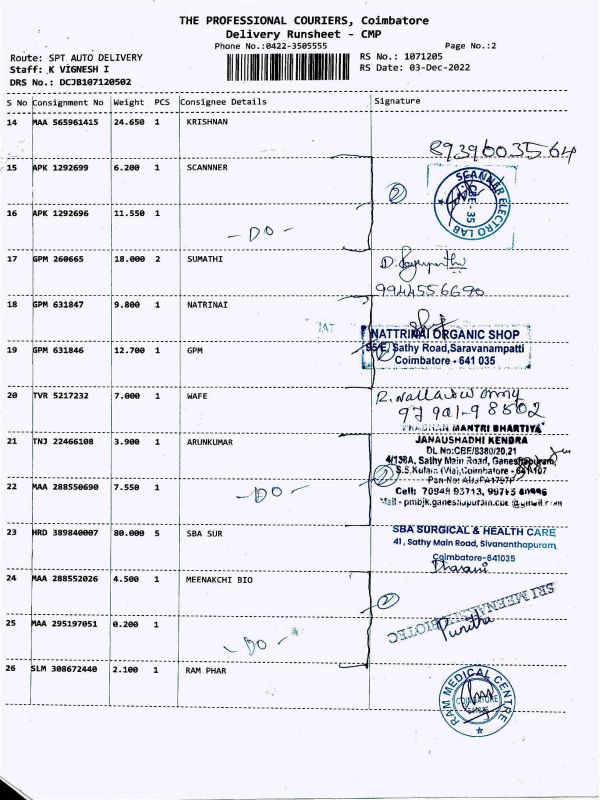 THE PROFESSIONAL COURIERS, Coimbatore
Delivery Runsheet - CMP
Phone No.:0422-3505555 Page No.:2
Route: SPT AUTO DELIVERY RS No.: 1071205
Staff: K VIGNESH I RS Date: 03-Dec-2022
DRS No.: DCJB107120502
S No Consignment No Weight PCS Consignee Details Signature
14 MAA 565961415 24.650 1 KRISHNAN
8939603564
15 APK 1292699 6.200 1 SCANNNER
2
SCANNER ELECTRO LAB
CBE-35
16 APK 1292696 11.550 1
- DO -
17 GPM 260665 18.000 2 SUMATHI
9944556690
18 GPM 631847 9.800 1 NATRINAI
NATTRINAI ORGANIC SHOP
19 GPM 631846 12.700 1 GPM
Sathy Road,Saravanampatti
Coimbatore - 641 035
20 TVR 5217232 7.000 1 WAFE
97901-98502
PRADHAN MANTRI BHARTIYA
21 TNJ 22466108 3.900 1 ARUNKUMAR
JANAUSHADHI KENDRA
DL No:CBE/8380/20,21
4/138A, Sathy Main Road, Ganeshapuram,
S.S.Kulam (Via),Coimbatore - 641107
22 MAA 288550690 7.550 1
2
- DO -
Cell: 70948 93713,
Mail - pmbjk.ganeshapuram.cbe @gmail.com
23 HRD 389840007 80.000 5 SBA SUR
SBA SURGICAL & HEALTH CARE
41, Sathy Main Road, Sivananthapuram
Coimbatore-641035
Dharani
24 MAA 288552026 4.500 1 MEENAKCHI BIO
2
SRI MEENAKSHI BIOTEC
25 MAA 295197051 0.200 1
- DO -
Punitha
26 SLM 308672440 2.100 1 RAM PHAR
RAM MEDICAL CENTRE
COIMBATORE